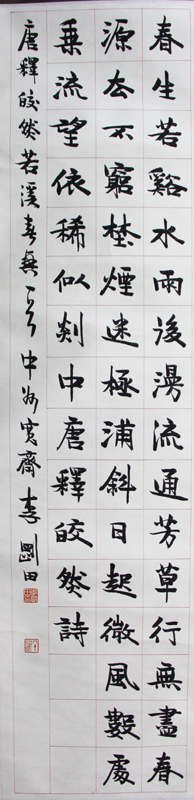 春生若谿水雨後漫流通芳草行無盡春
源去不窮埜煙迷極浦斜日起微風數處
乘流望依稀似剡中唐釋皎然詩
唐釋皎然若溪春興一首中州寬齋李剛田